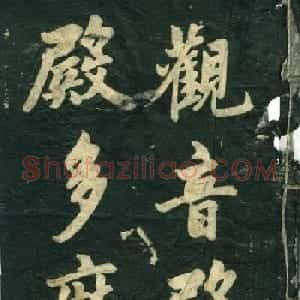 觀音
殿多
Shufaziliao.com